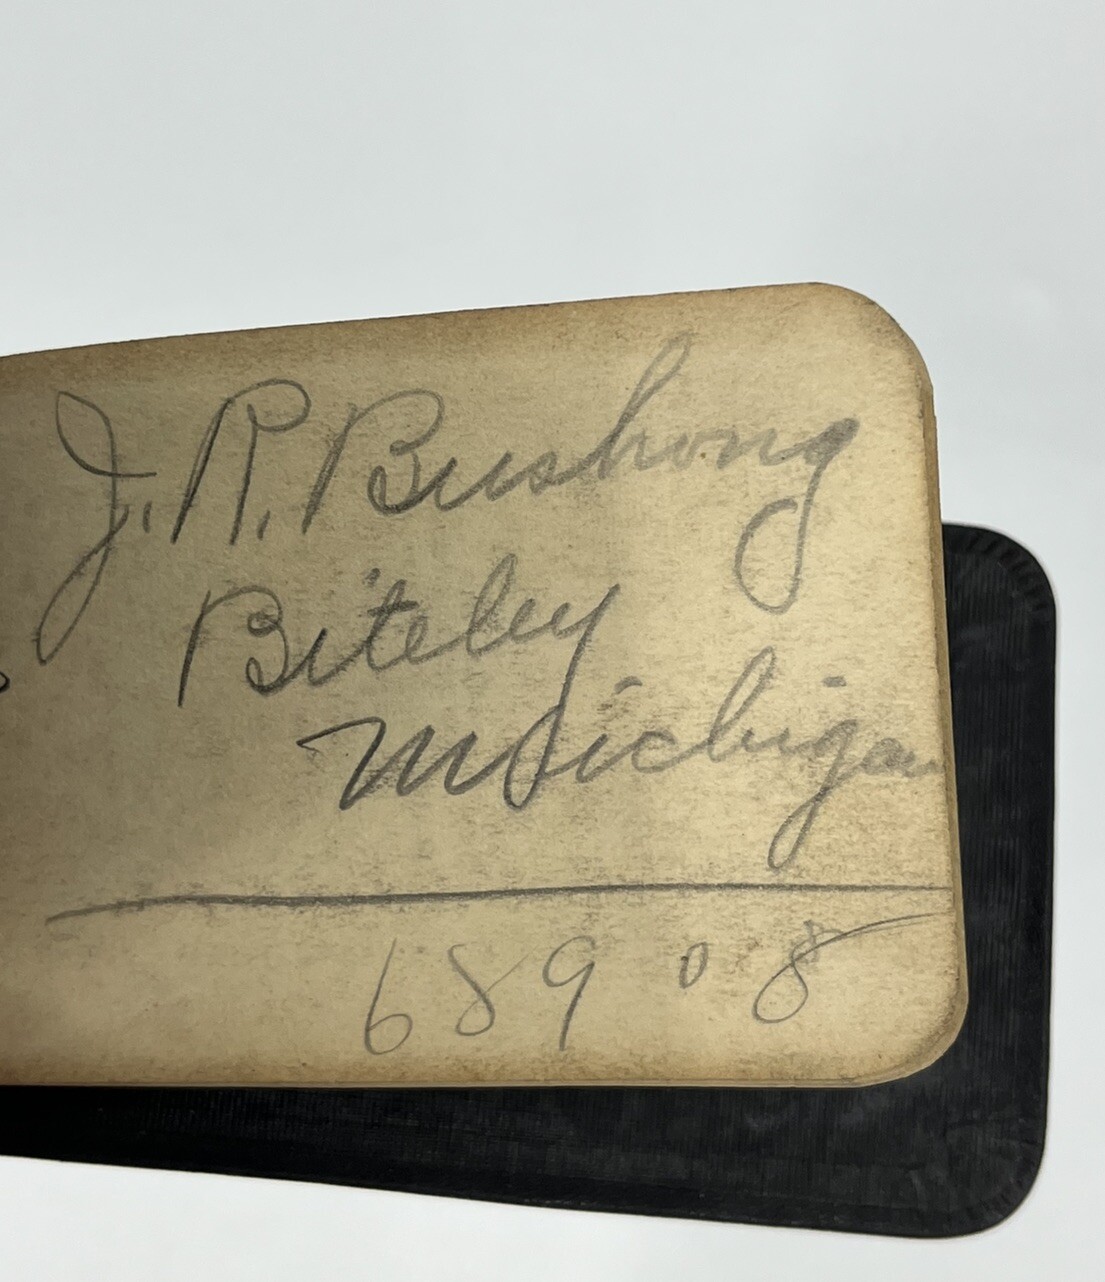 J. R. Bushong
Biteley
Michigan
689 08